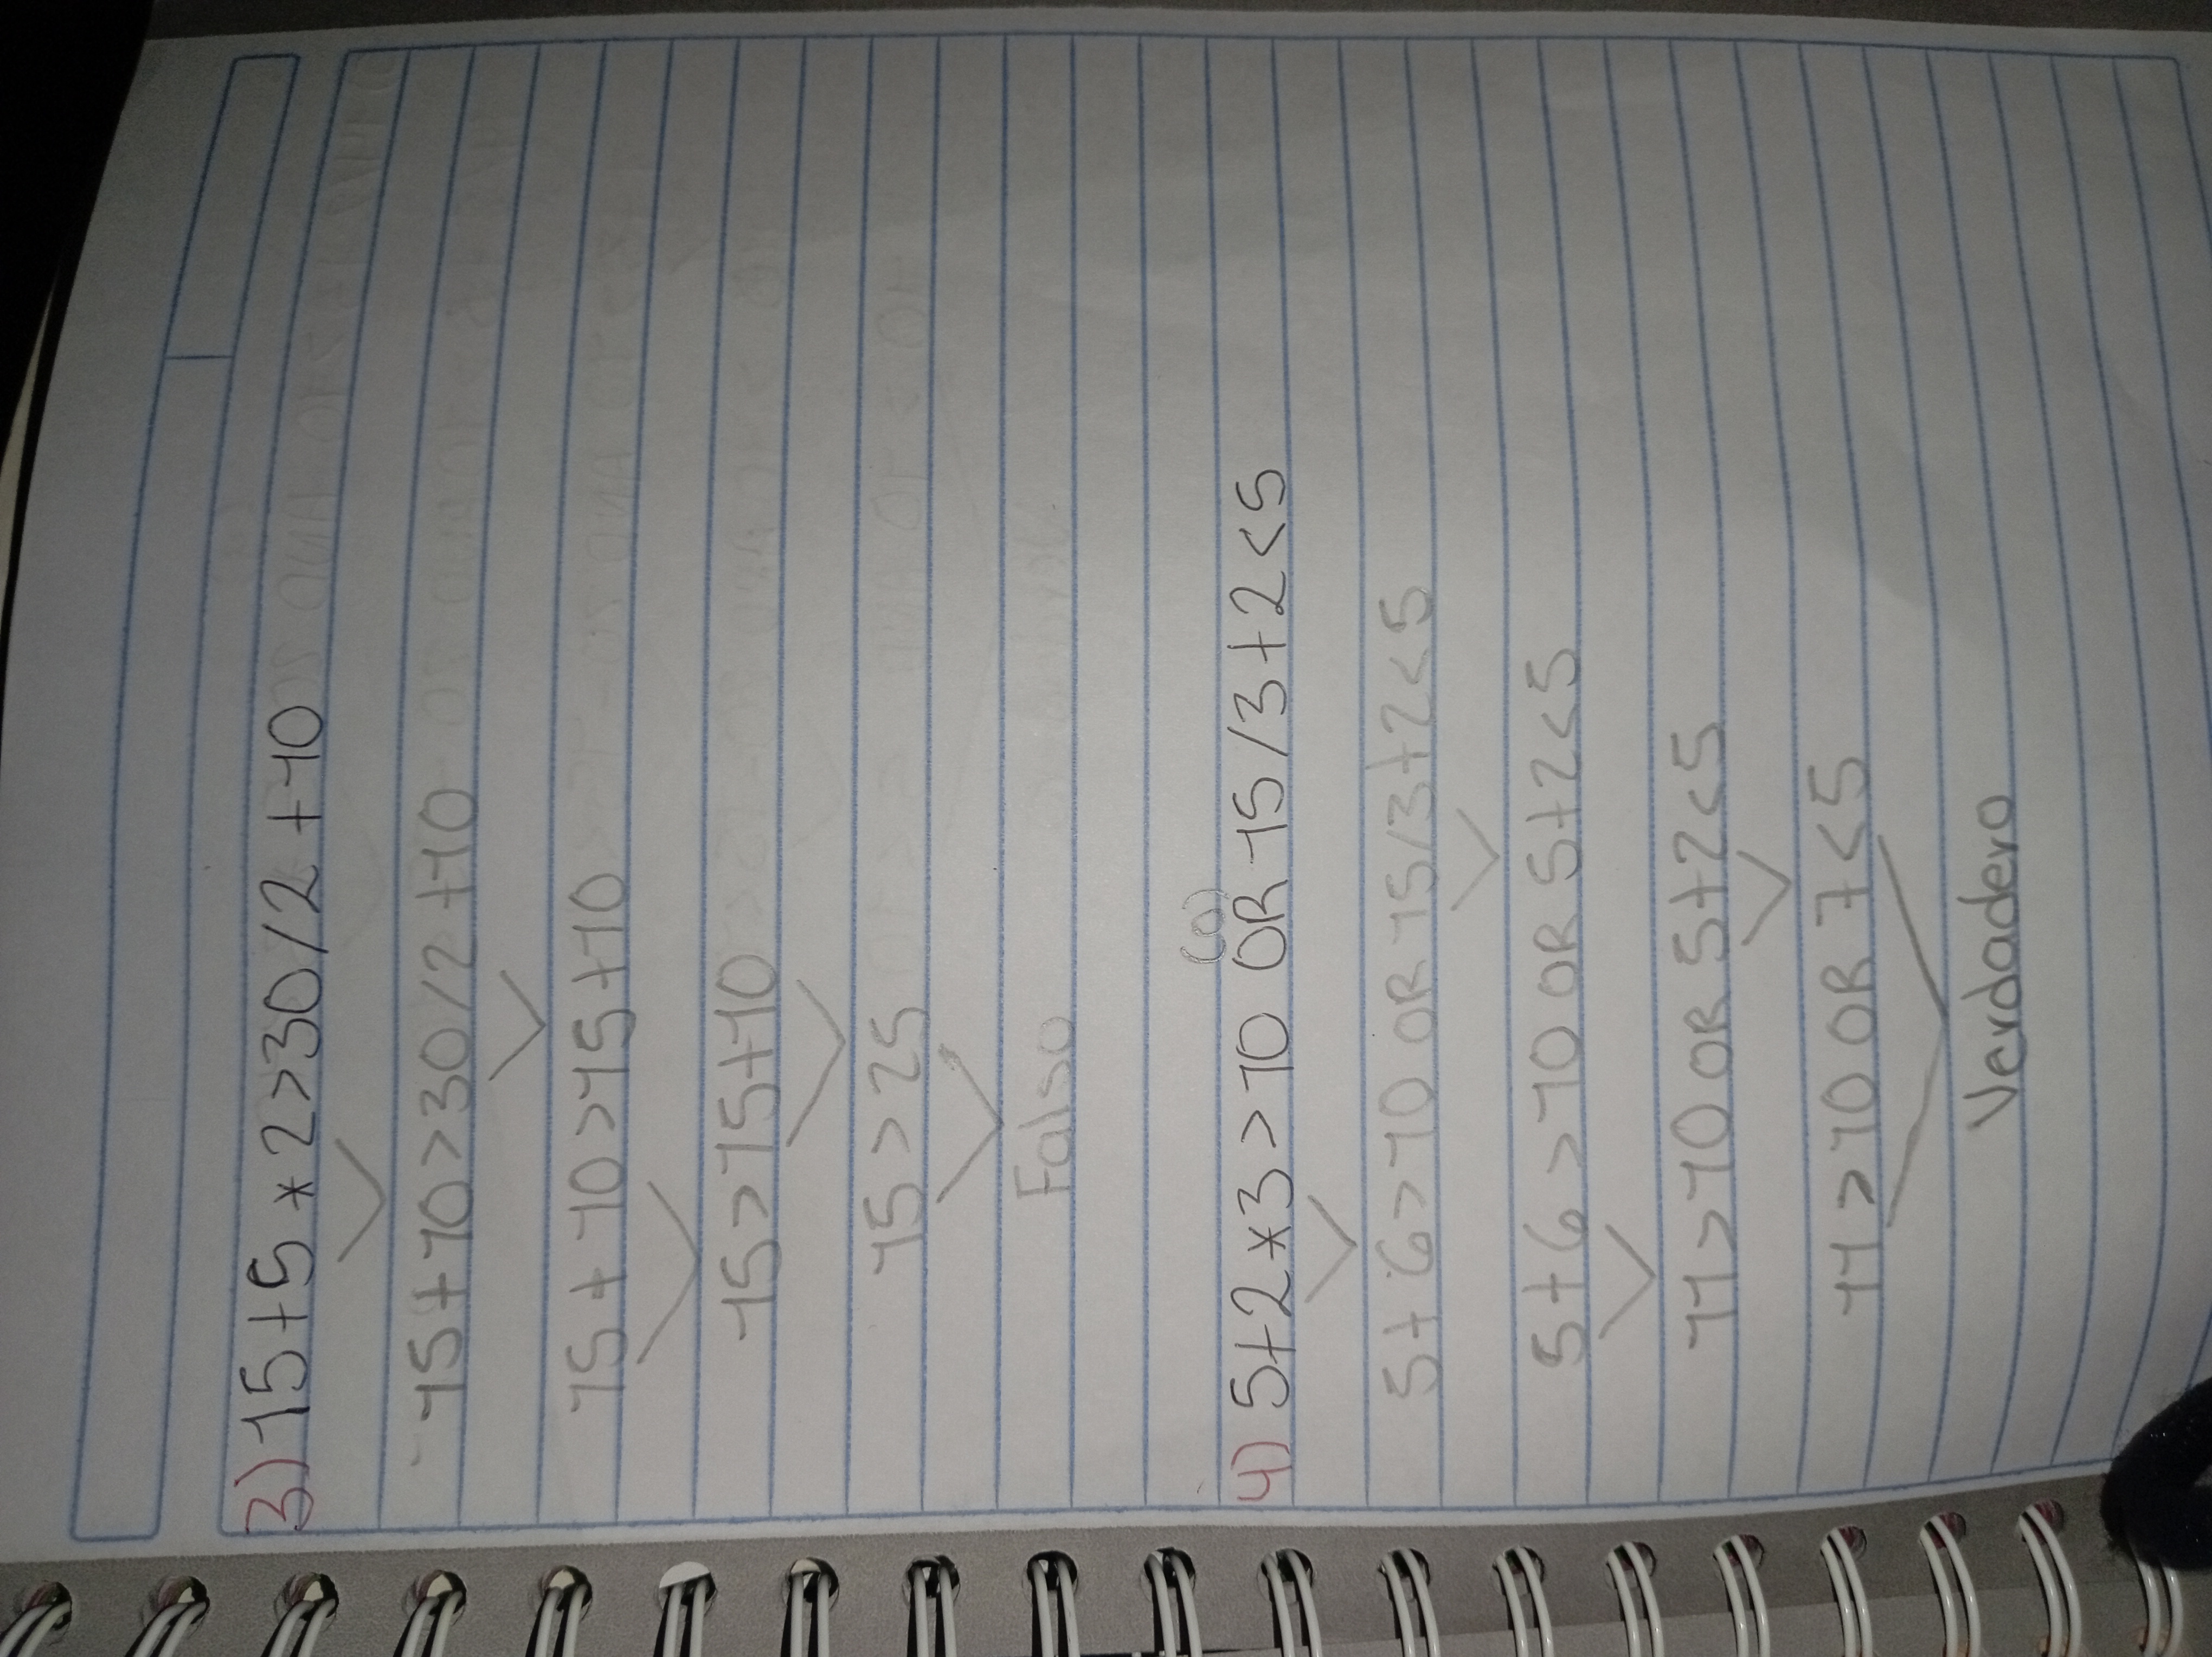 3) 15+5*2>30/2+10
15+10>30/2+10
15+10>15+10
15>15+10
15>25
Falso
(o)
4) 5+2*3>10 OR 15/3+2<5
5+6>10 OR 15/3+2<5
5+6>10 OR 5+2<5
11>10 OR 5+2<5
11>10 OR 7<5
Verdadero